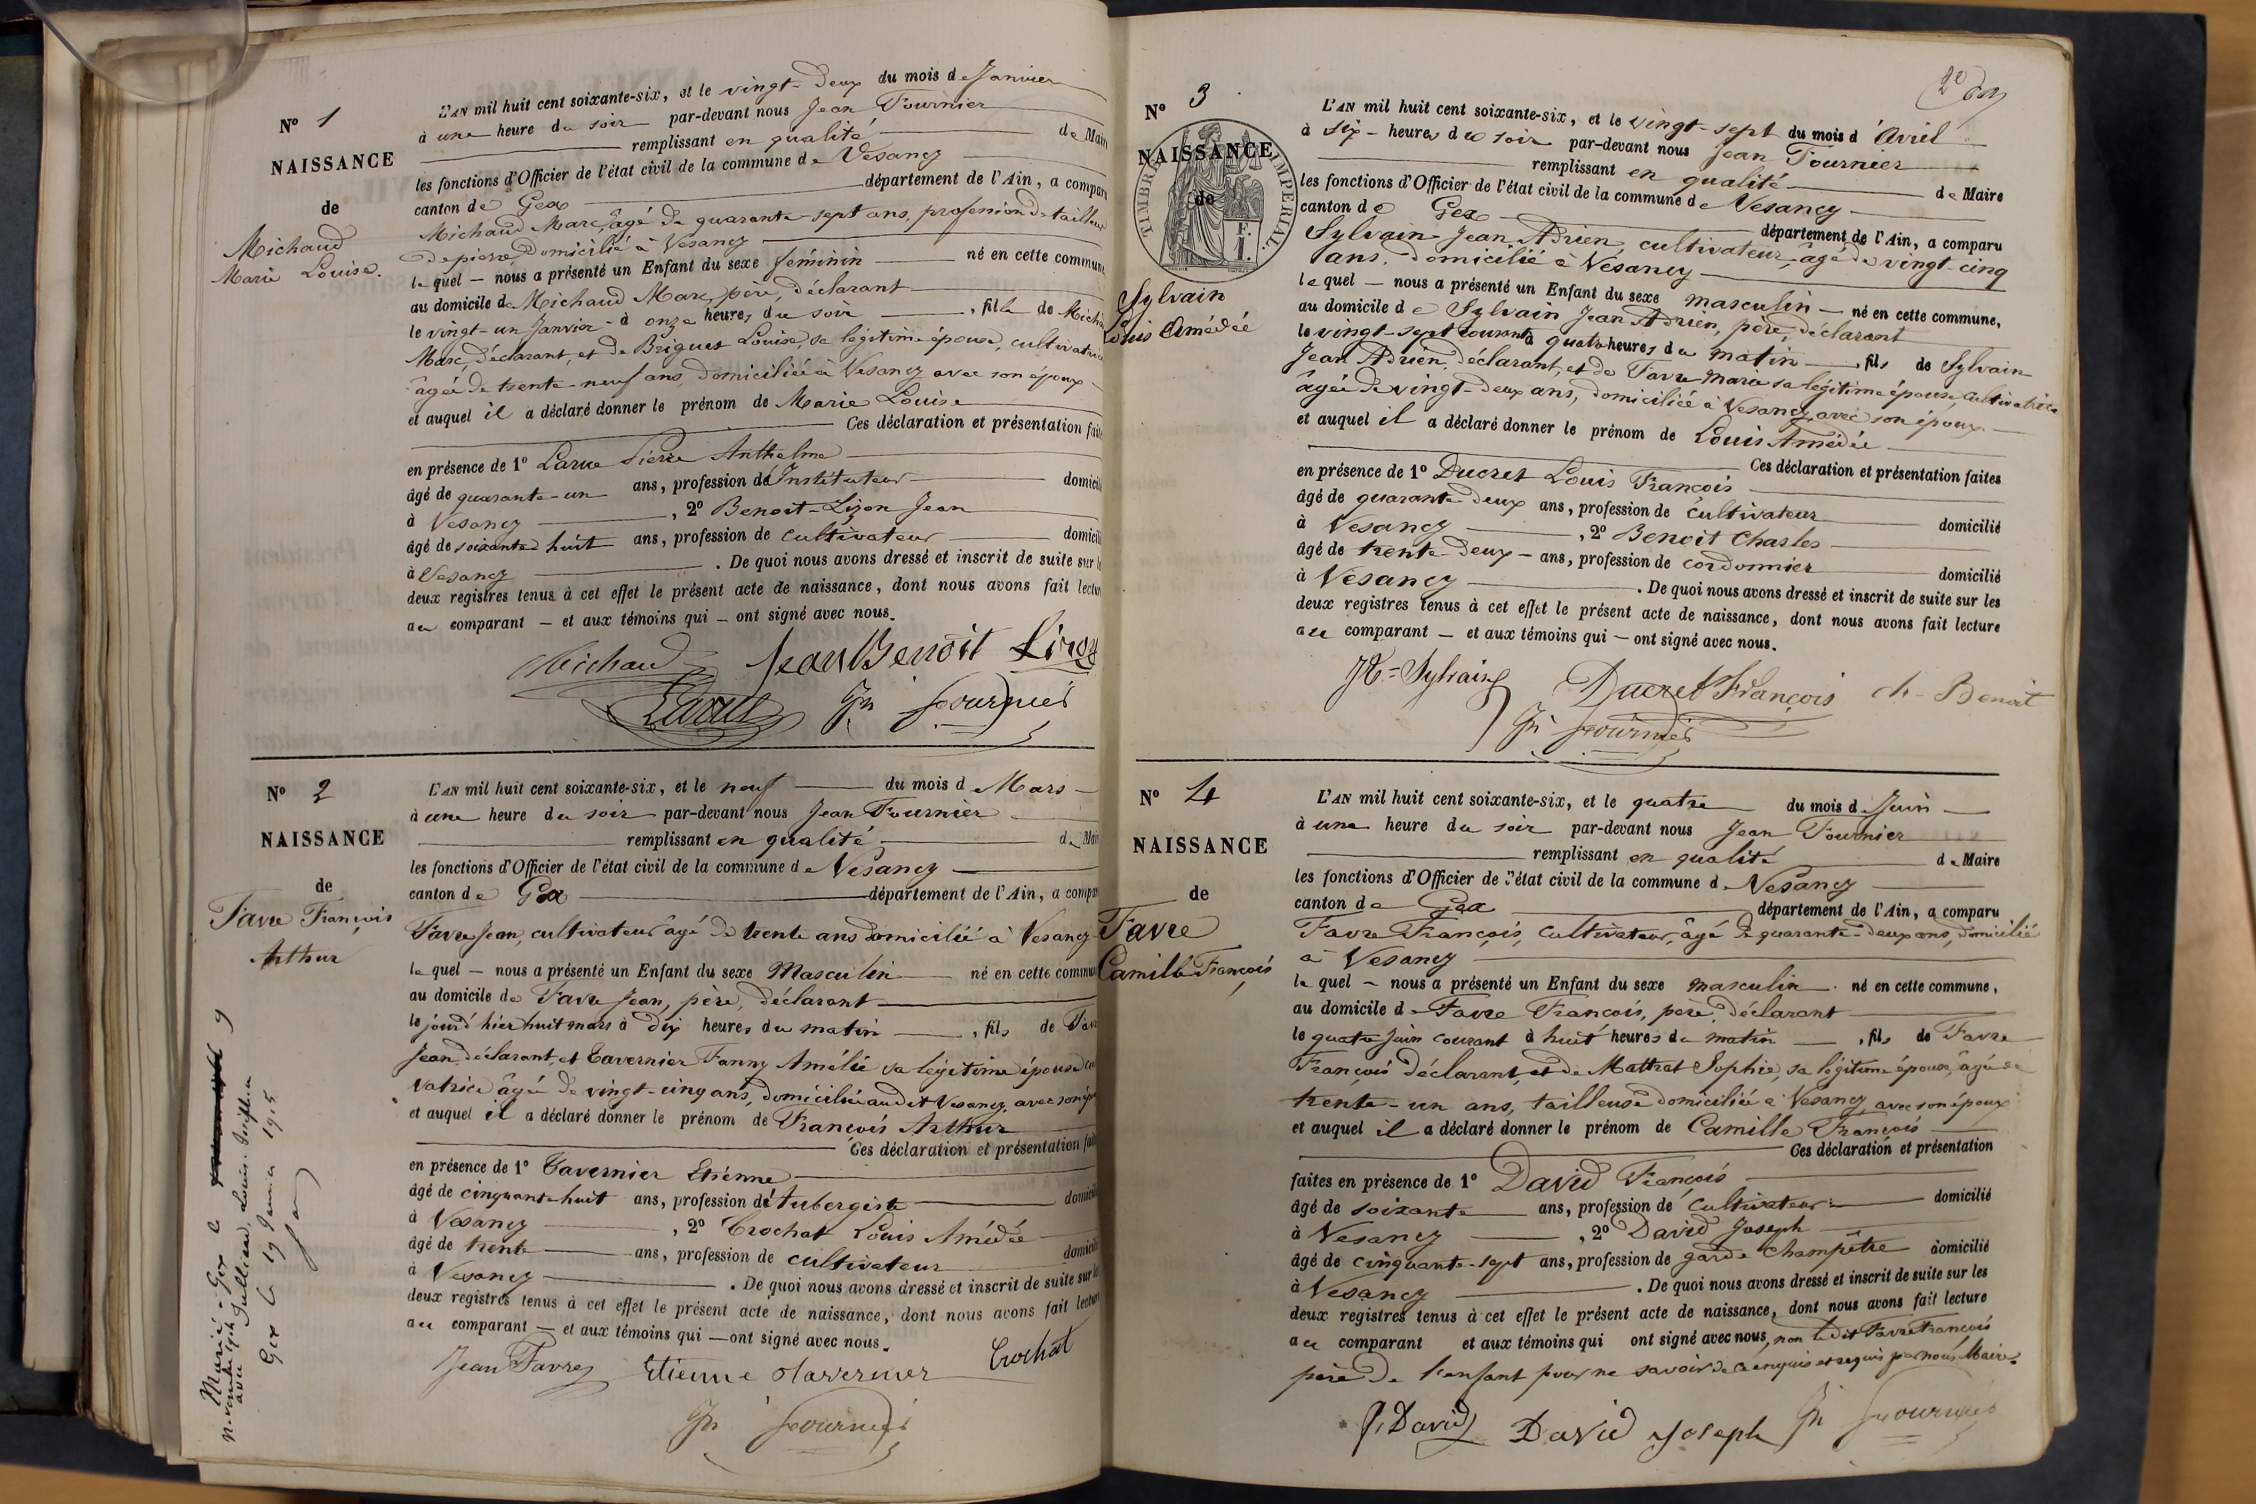 N° 1
NAISSANCE
de
Michaud
Marie Louise.
L'AN mil huit cent soixante-six, et le vingt-deux du mois de Janvier
à une heure du soir par-devant nous Jean Fournier
remplissant en qualité de Maire
les fonctions d'Officier de l'état civil de la commune de Vesancy
canton de Gex département de l'Ain, a comparu
Michaud Marc, âgé de quarante-sept ans, profession de tailleur
de pierre, domicilié à Vesancy
lequel nous a présenté un Enfant du sexe féminin né en cette commune
au domicile de Michaud Marc, père, déclarant
le vingt-un Janvier à onze heures du soir, fille de
Marc, déclarant, et de Briguet Louise, sa légitime épouse, cultivatrice
âgée de trente-neuf ans, domiciliée à Vesancy avec son époux
et auquel il a déclaré donner le prénom de Marie Louise
Ces déclaration et présentation
en présence de 1° Larue Pierre Anthelme
âgé de quarante-un ans, profession d'Instituteur
à Vesancy, 2° Benoit-Lizon Jean
âgé de soixante huit ans, profession de cultivateur
à Vesancy. De quoi nous avons dressé et inscrit de suite sur
deux registres tenus à cet effet le présent acte de naissance, dont nous avons fait
au comparant et aux témoins qui ont signé avec nous.
Michaud Jean Benoit Lizon
Larue Jn Fournier
N° 2
NAISSANCE
de
Favre François
Arthur
L'AN mil huit cent soixante-six, et le neuf du mois d Mars
à une heure du soir par-devant nous Jean Fournier
remplissant en qualité
les fonctions d'Officier de l'état civil de la commune de Vesancy
canton de Gex département de l'Ain, a
Favre Jean, cultivateur âgé de trente ans domicilié à Vesancy
lequel nous a présenté un Enfant du sexe Masculin né en cette
au domicile de Favre Jean, père, déclarant
le jour d'hier huit mars à dix heures du matin, fils de
Jean déclarant, et Tavernier Fanny Amélie sa légitime épouse
vatrice âgée de vingt-cinq ans, domiciliée au dit Vesancy, avec son
et auquel il a déclaré donner le prénom de François Arthur
Ces déclaration et présentation
en présence de 1° Tavernier Etienne
âgé de cinquante huit ans, profession d'Aubergiste
à Vesancy, 2° Crochat Louis Amédée
âgé de trente ans, profession de cultivateur
à Vesancy. De quoi nous avons dressé et inscrit de suite sur
deux registres tenus à cet effet le présent acte de naissance, dont nous avons fait
au comparant et aux témoins qui ont signé avec nous.
Jean Favre Etienne Tavernier Crochat
Jn Fournier
Marié à Gex le 9
avec
Gex le 19 1915
2e
N° 3
NAISSANCE
de
TIMBRE IMPERIAL
Sylvain
Louis Amédée
L'AN mil huit cent soixante-six, et le vingt-sept du mois d'Avril
à six heures du soir par-devant nous Jean Fournier
remplissant en qualité de Maire
les fonctions d'Officier de l'état civil de la commune de Vesancy
canton de Gex département de l'Ain, a comparu
Sylvain Jean Adrien, cultivateur, âgé de vingt-cinq
ans, domicilié à Vesancy
lequel nous a présenté un Enfant du sexe masculin né en cette commune,
au domicile de Sylvain Jean Adrien, père, déclarant
le vingt-sept courant à quatre heures du matin, fils de Sylvain
Jean Adrien, déclarant, et de Favre Marie sa légitime épouse, cultivatrice
âgée de vingt-deux ans, domiciliée à Vesancy avec son époux
et auquel il a déclaré donner le prénom de Louis Amédée
Ces déclaration et présentation faites
en présence de 1° Ducret Louis François
âgé de quarante deux ans, profession de cultivateur domicilié
à Vesancy, 2° Benoit Charles
âgé de trente deux ans, profession de cordonnier domicilié
à Vesancy. De quoi nous avons dressé et inscrit de suite sur les
deux registres tenus à cet effet le présent acte de naissance, dont nous avons fait lecture
au comparant et aux témoins qui ont signé avec nous.
Sylvain Ducret François ch. Benoit
Jn Fournier
N° 4
NAISSANCE
de
Favre
Camille François
L'AN mil huit cent soixante-six, et le quatre du mois d Juin
à une heure du soir par-devant nous Jean Fournier
remplissant en qualité de Maire
les fonctions d'Officier de l'état civil de la commune d Vesancy
canton de Gex département de l'Ain, a comparu
Favre François, cultivateur, âgé de quarante-deux ans, domicilié
à Vesancy
lequel nous a présenté un Enfant du sexe masculin né en cette commune,
au domicile d Favre François, père, déclarant
le quatre Juin courant à huit heures du matin, fils de Favre
François déclarant, et de Mattrat Sophie, sa légitime épouse, âgée de
trente-un ans, tailleuse domiciliée à Vesancy avec son époux
et auquel il a déclaré donner le prénom de Camille François
Ces déclaration et présentation
faites en présence de 1° David François
âgé de soixante ans, profession de cultivateur domicilié
à Vesancy, 2° David Joseph
âgé de cinquante-sept ans, profession de garde champêtre domicilié
à Vesancy. De quoi nous avons dressé et inscrit de suite sur les
deux registres tenus à cet effet le présent acte de naissance, dont nous avons fait lecture
au comparant et aux témoins qui ont signé avec nous, non ledit Favre François
père de l'enfant pour ne savoir de ce enquis et requis par nous Maire.
F. David David Joseph Jn Fournier